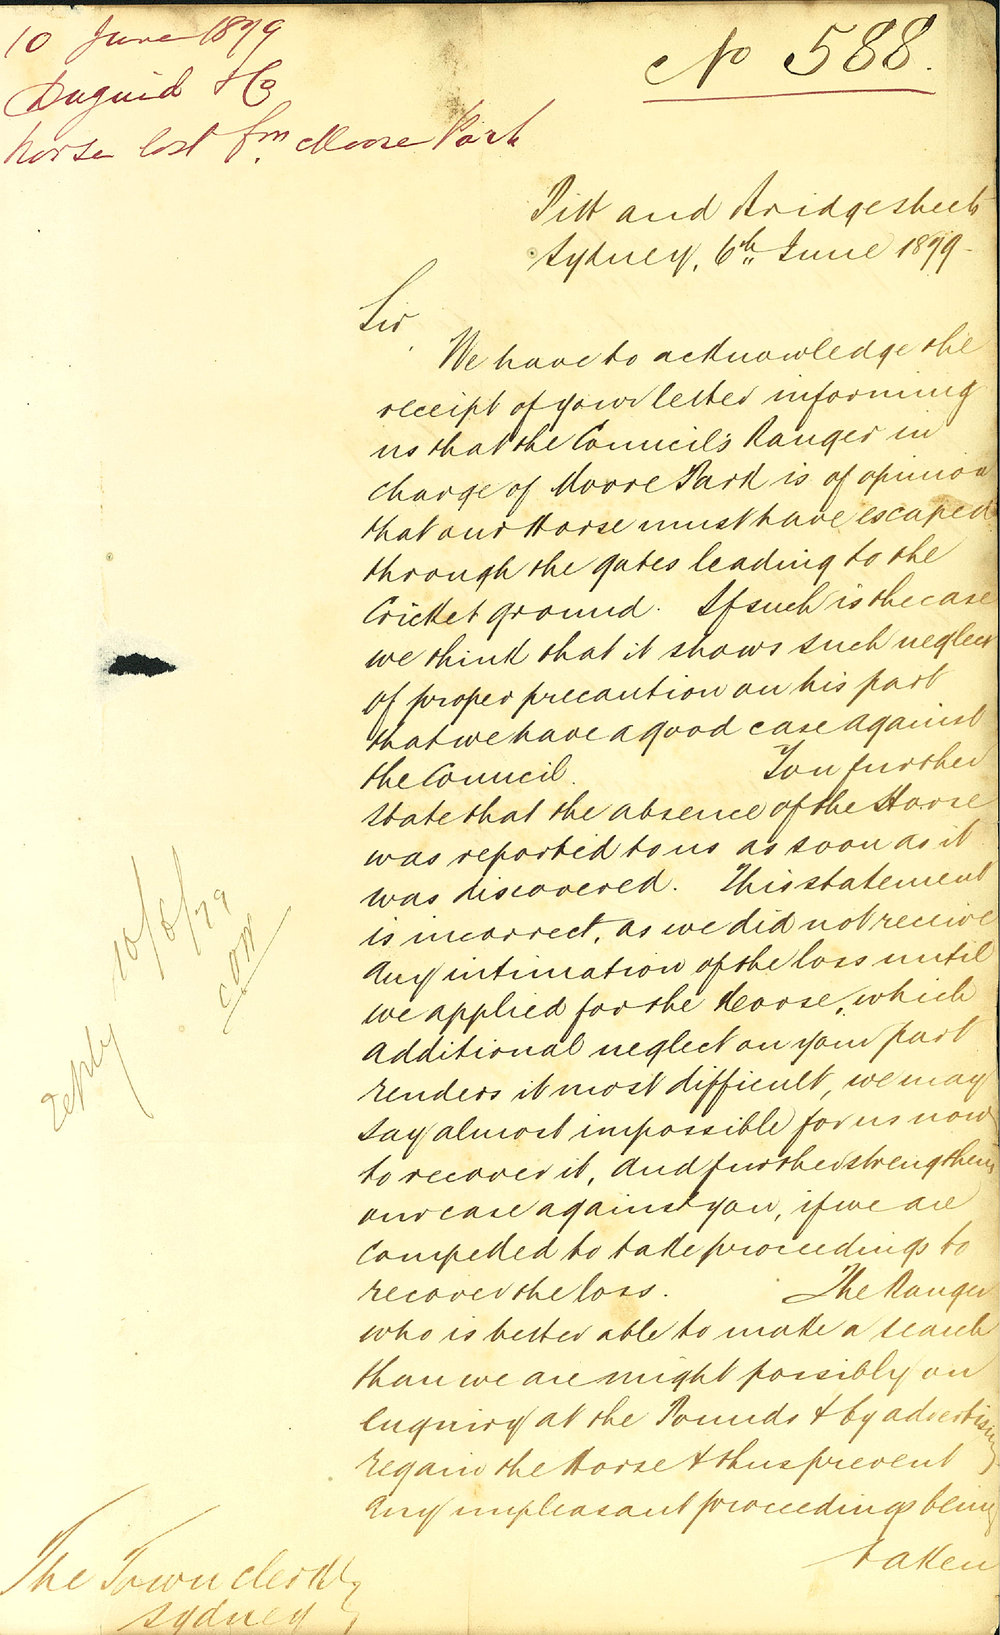 10 June 1879
Duguid & Co
horse lost fm Moore Park
No 588.
Pitt and Bridge streets
Sydney, 6th June 1879
Sir,
We have to acknowledge the
receipt of your letter informing
us that the Council's Ranger in
charge of Moore Park is of opinion
that our Horse must have escaped
through the gates leading to the
Cricket ground. If such is the case
we think that it shows such neglect
of proper precaution on his part
that we have a good case against
the Council. You further
state that the absence of the Horse
was reported to us as soon as it
was discovered. This statement
is incorrect, as we did not receive
any intimation of the loss until
we applied for the Horse, which
additional neglect on your part
renders it most difficult, we may
say almost impossible for us now
to recover it, and further strengthens
our case against you, if we are
compelled to take proceedings to
recover the loss. The Ranger
who is better able to make a search
than we are might possibly on
enquiry at the Pounds & by advertising
regain the Horse & thus prevent
any unpleasant proceedings being
taken
The Town Clerk
Sydney
reply 10/6/79